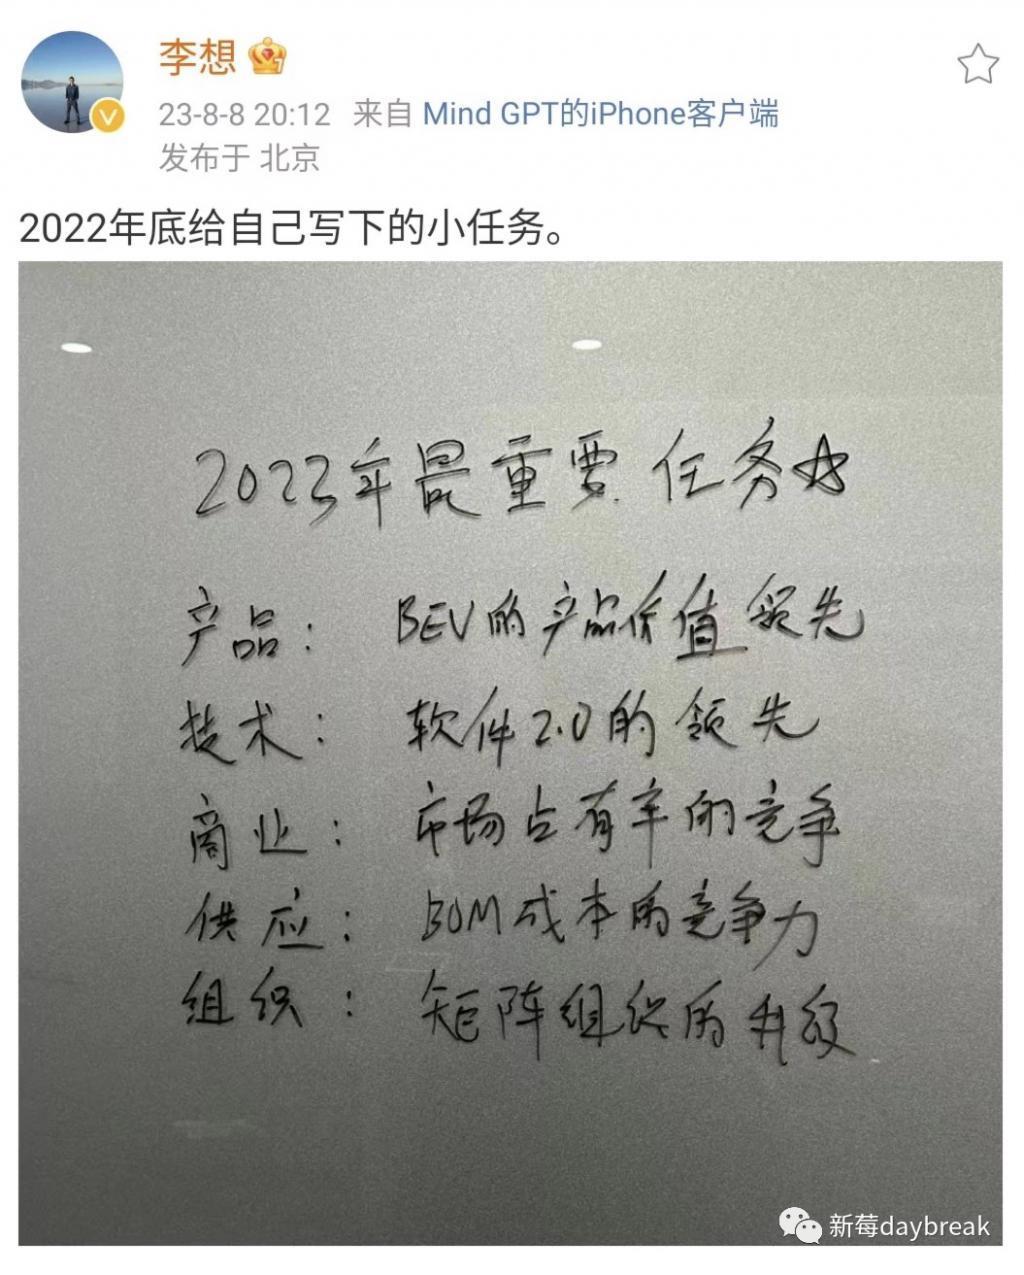 李想
23-8-8 20:12 来自 Mind GPT的iPhone客户端
发布于 北京
2022年底给自己写下的小任务。
2023年最重要任务☆
产品： BEV的产品价值领先
技术： 软件2.0的领先
商业： 市场占有率的竞争
供应： BOM成本的竞争力
组织： 矩阵组织的升级
新莓daybreak